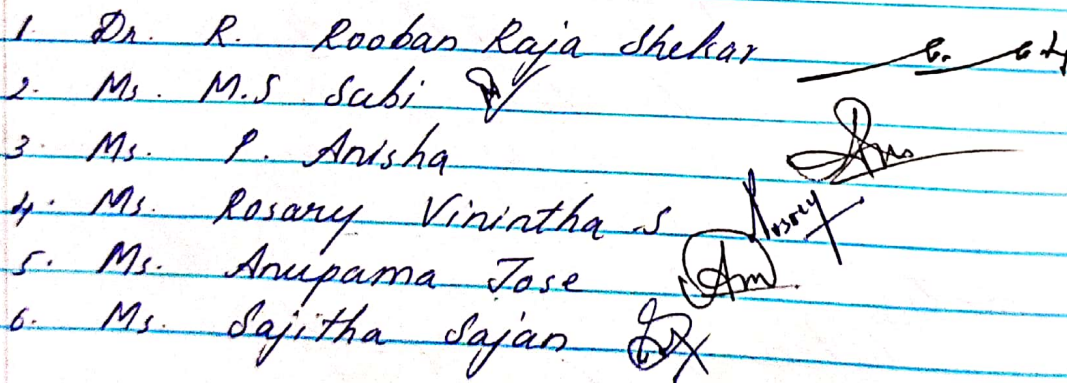 1. Dr. R. Rooban Raja Shekar
2. Ms. M.S Subi
3. Ms. P. Anisha
4. Ms. Rosary Vinintha S Rosary
5. Ms. Anupama Jose Am
6. Ms. Sajitha Sajan